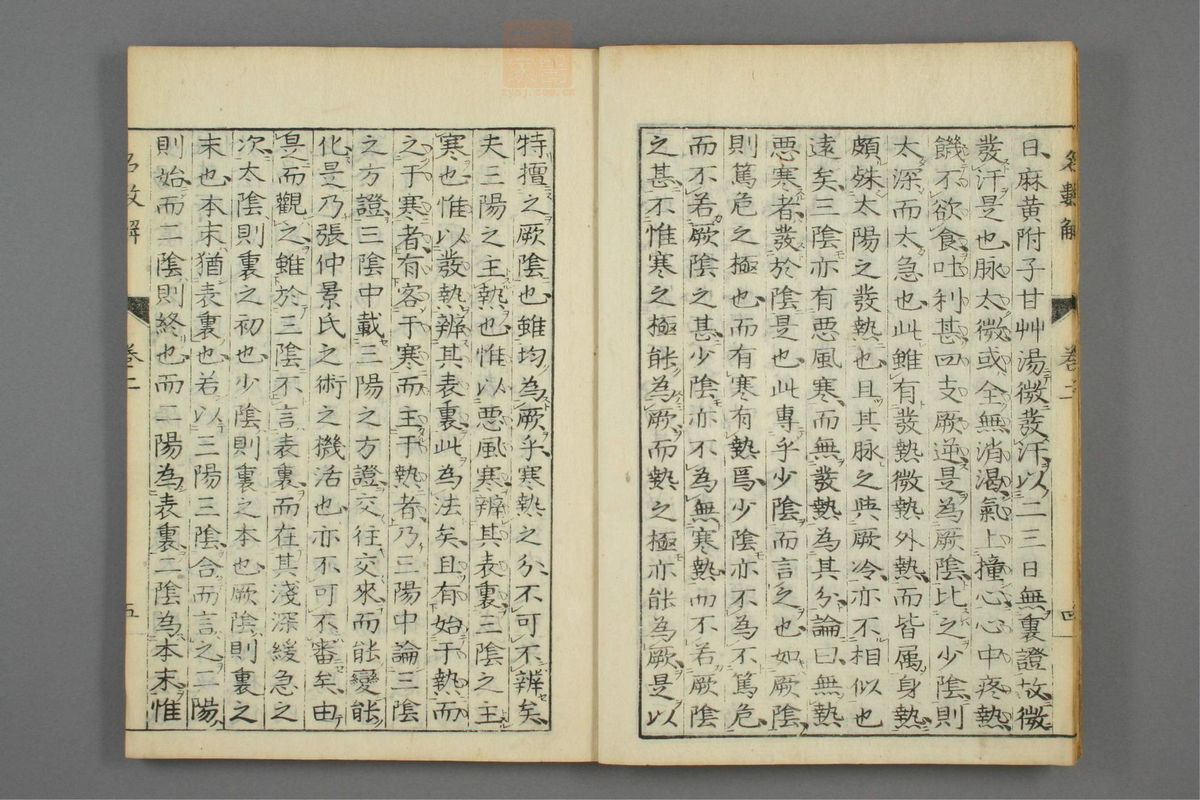 名數解 卷二 四
曰麻黄附子甘艸湯微發汗以二三日無裏證故微
發汗是也脉太微或全無消渴氣上撞心心中疼熱
饑不欲食吐利甚四支厥逆是為厥陰比之少陰則
太深而太急也此雖有發熱微熱外熱而皆属身熱
頗殊太陽之發熱也且其脉之與厥冷亦不相似也
遠矣三陰亦有悪風寒而無發熱為其分論曰無熱
悪寒者發於陰是也此專乎少陰而言之也如厥陰
則篤危之極也而有寒有熱焉少陰亦不為不篤危
而不若厥陰之甚少陰亦不為無寒熱而不若厥陰
之甚不惟寒之極能為厥而熱之極亦能為厥是以
特擅之厥陰也雖均為厥乎寒熱之分不可不辨矣
夫三陽之主熱也惟以悪風寒辨其表裏三陰之主
寒也惟以發熱辨其表裏此為法矣且有始于熱而
之于寒者有客于寒而主于熱者乃三陽中論三陰
之方證三陰中載三陽之方證交往交來而能變能
化是乃張仲景氏之術之機活也亦不可不審矣由
是而觀之雖於三陰不言表裏而在其淺深緩急之
次太陰則裏之初也少陰則裏之本也厥陰則裏之
末也本末猶表裏也若以三陽三陰合而言之二陽
則始而二陰則終也而二陽為表裏二陰為本末惟
名數解 卷二 五